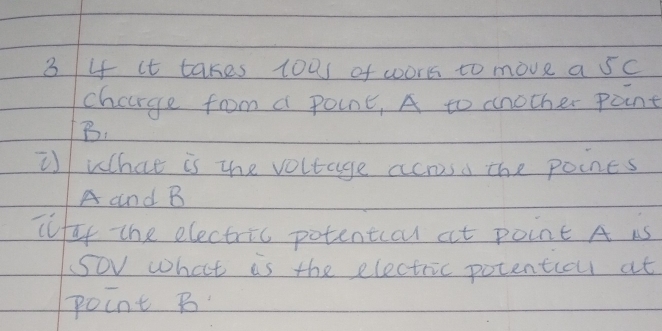 3 If it takes 100J of work to move a 5C
charge from a point, A to another point
B.
i) What is the voltage across the points
A and B
ii) If the electric potential at point A is
50V what is the electric potential at
point B.